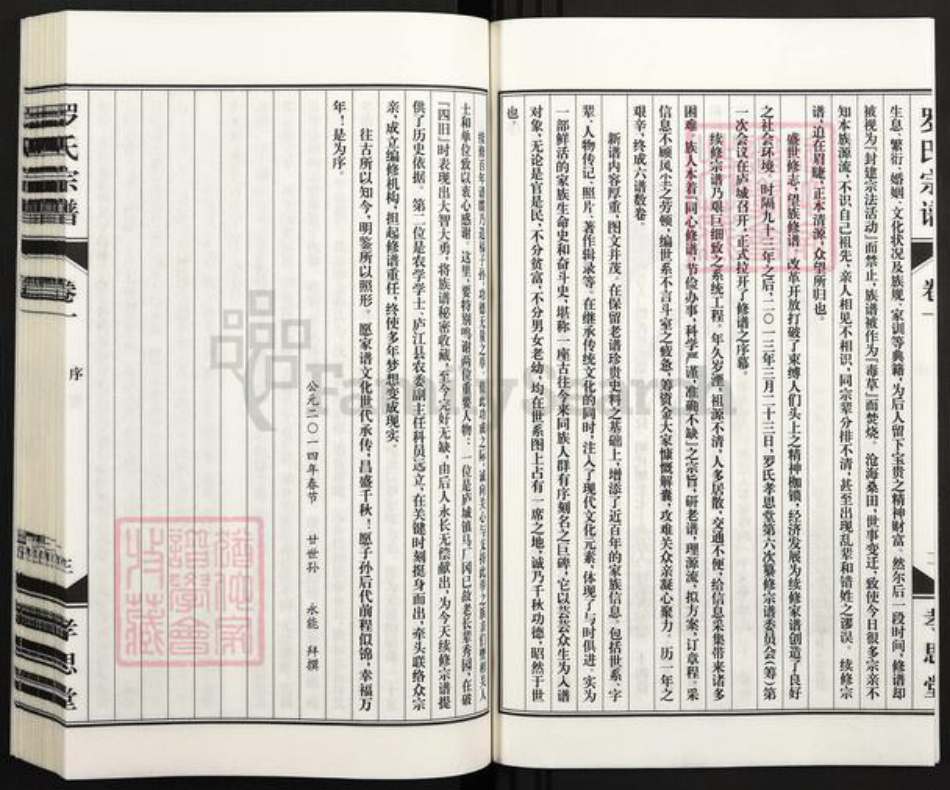 罗氏宗谱
卷一
孝思堂
生息、繁衍、婚姻、文化状况及族规、家训等典籍，为后人留下宝贵之精神财富。然尔后一段时间，修谱却
被视为『封建宗法活动』而禁止，族谱被作为『毒草』而焚烧。沧海桑田，世事变迁，致使今日很多宗亲不
知本族源流，不识自己祖先，亲人相见不相识，同宗辈分排不清，甚至出现乱辈和错姓之谬误。续修宗
谱，迫在眉睫，正本清源，众望所归也。
盛世修志，望族修谱。改革开放打破了束缚人们头上之精神枷锁，经济发展为续修家谱创造了良好
之社会环境。时隔九十三年之后，二〇一三年三月二十三日，罗氏孝思堂第六次纂修宗谱委员会(筹)第
一次会议在庐城召开，正式拉开了修谱之序幕。
续修宗谱乃艰巨细致之系统工程。年久岁湮，祖源不清，人多居散，交通不便，给信息采集带来诸多
困难。族人本着『同心修谱，节俭办事，科学严谨，准确不缺』之宗旨，研老谱，理源流，拟方案，订章程。采
信息不顾风尘之劳顿，编世系不言斗室之疲惫，筹资金大家慷慨解囊，攻难关众亲凝心聚力。历一年之
艰辛，终成六谱数卷。
新谱内容厚重，图文并茂。在保留老谱珍贵史料之基础上，增添了近百年的家族信息。包括世系、字
辈、人物传记、照片、著作辑录等。在继承传统文化的同时，注入了现代文化元素，体现了与时俱进。实为
一部鲜活的家族生命史和奋斗史，堪称一座古往今来同族人群有序刻名之巨碑，它以芸芸众生为入谱
对象，无论是官是民，不分贫富，不分男女老幼，均在世系图上占有一席之地，诚乃千秋功德，昭然于世
也。
续修百年谱牒，乃造福子孙，功德无量之举。
士和单位致以衷心感谢。这里，要特别鸣谢两位重要人物：一位是庐城镇马厂冈已故老长辈秀园，在破
『四旧』时表现出大智大勇，将族谱秘密收藏，至今完好无缺，由后人永长无偿献出，为今天续修宗谱提
供了历史依据。第二位是农学学士、庐江县农委副主任科员远立，在关键时刻挺身而出，牵头联络众宗
亲，成立编修机构，担起修谱重任，终使多年梦想变成现实。
往古所以知今，明鉴所以照形。愿家谱文化世代承传，昌盛千秋！愿子孙后代前程似锦，幸福万
年！是为序。
公元二〇一四年春节 廿世孙 永能 拜撰
罗氏宗谱
卷一
序
二
孝思堂
FamilySearch